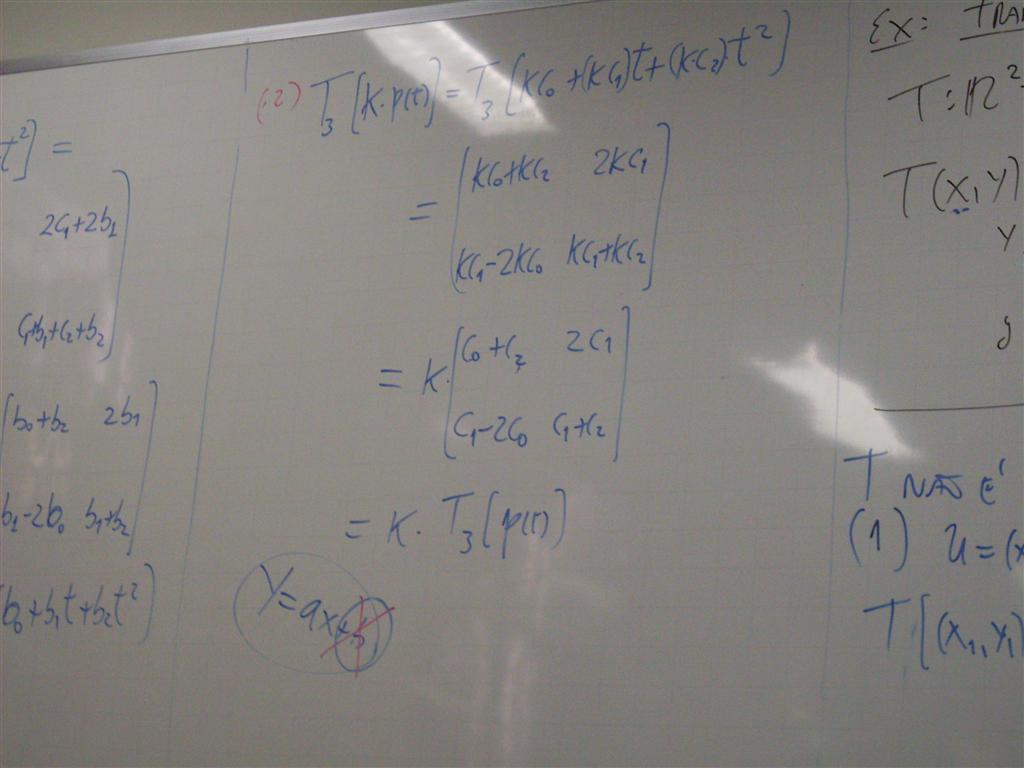 t²] =
2c₁+2b₁
c₁+b₁+c₂+b₂
b₀+b₂ 2b₁
b₁-2b₀ b₁+b₂
b₀+b₁t+b₂t²)
(.2) T₃[K.p(t)] = T₃[KC₀+(KC₁)t+(KC₂)t²]
= [KC₀+KC₂ 2KC₁
KC₁-2KC₀ KC₁+KC₂]
= K.[C₀+C₂ 2C₁
C₁-2C₀ C₁+C₂]
= K. T₃[p(t)]
Y=ax+b
EX:
T:R²
T(x,y)
y
T NÃO É
(1) u=(x
T[(x₁,y₁)